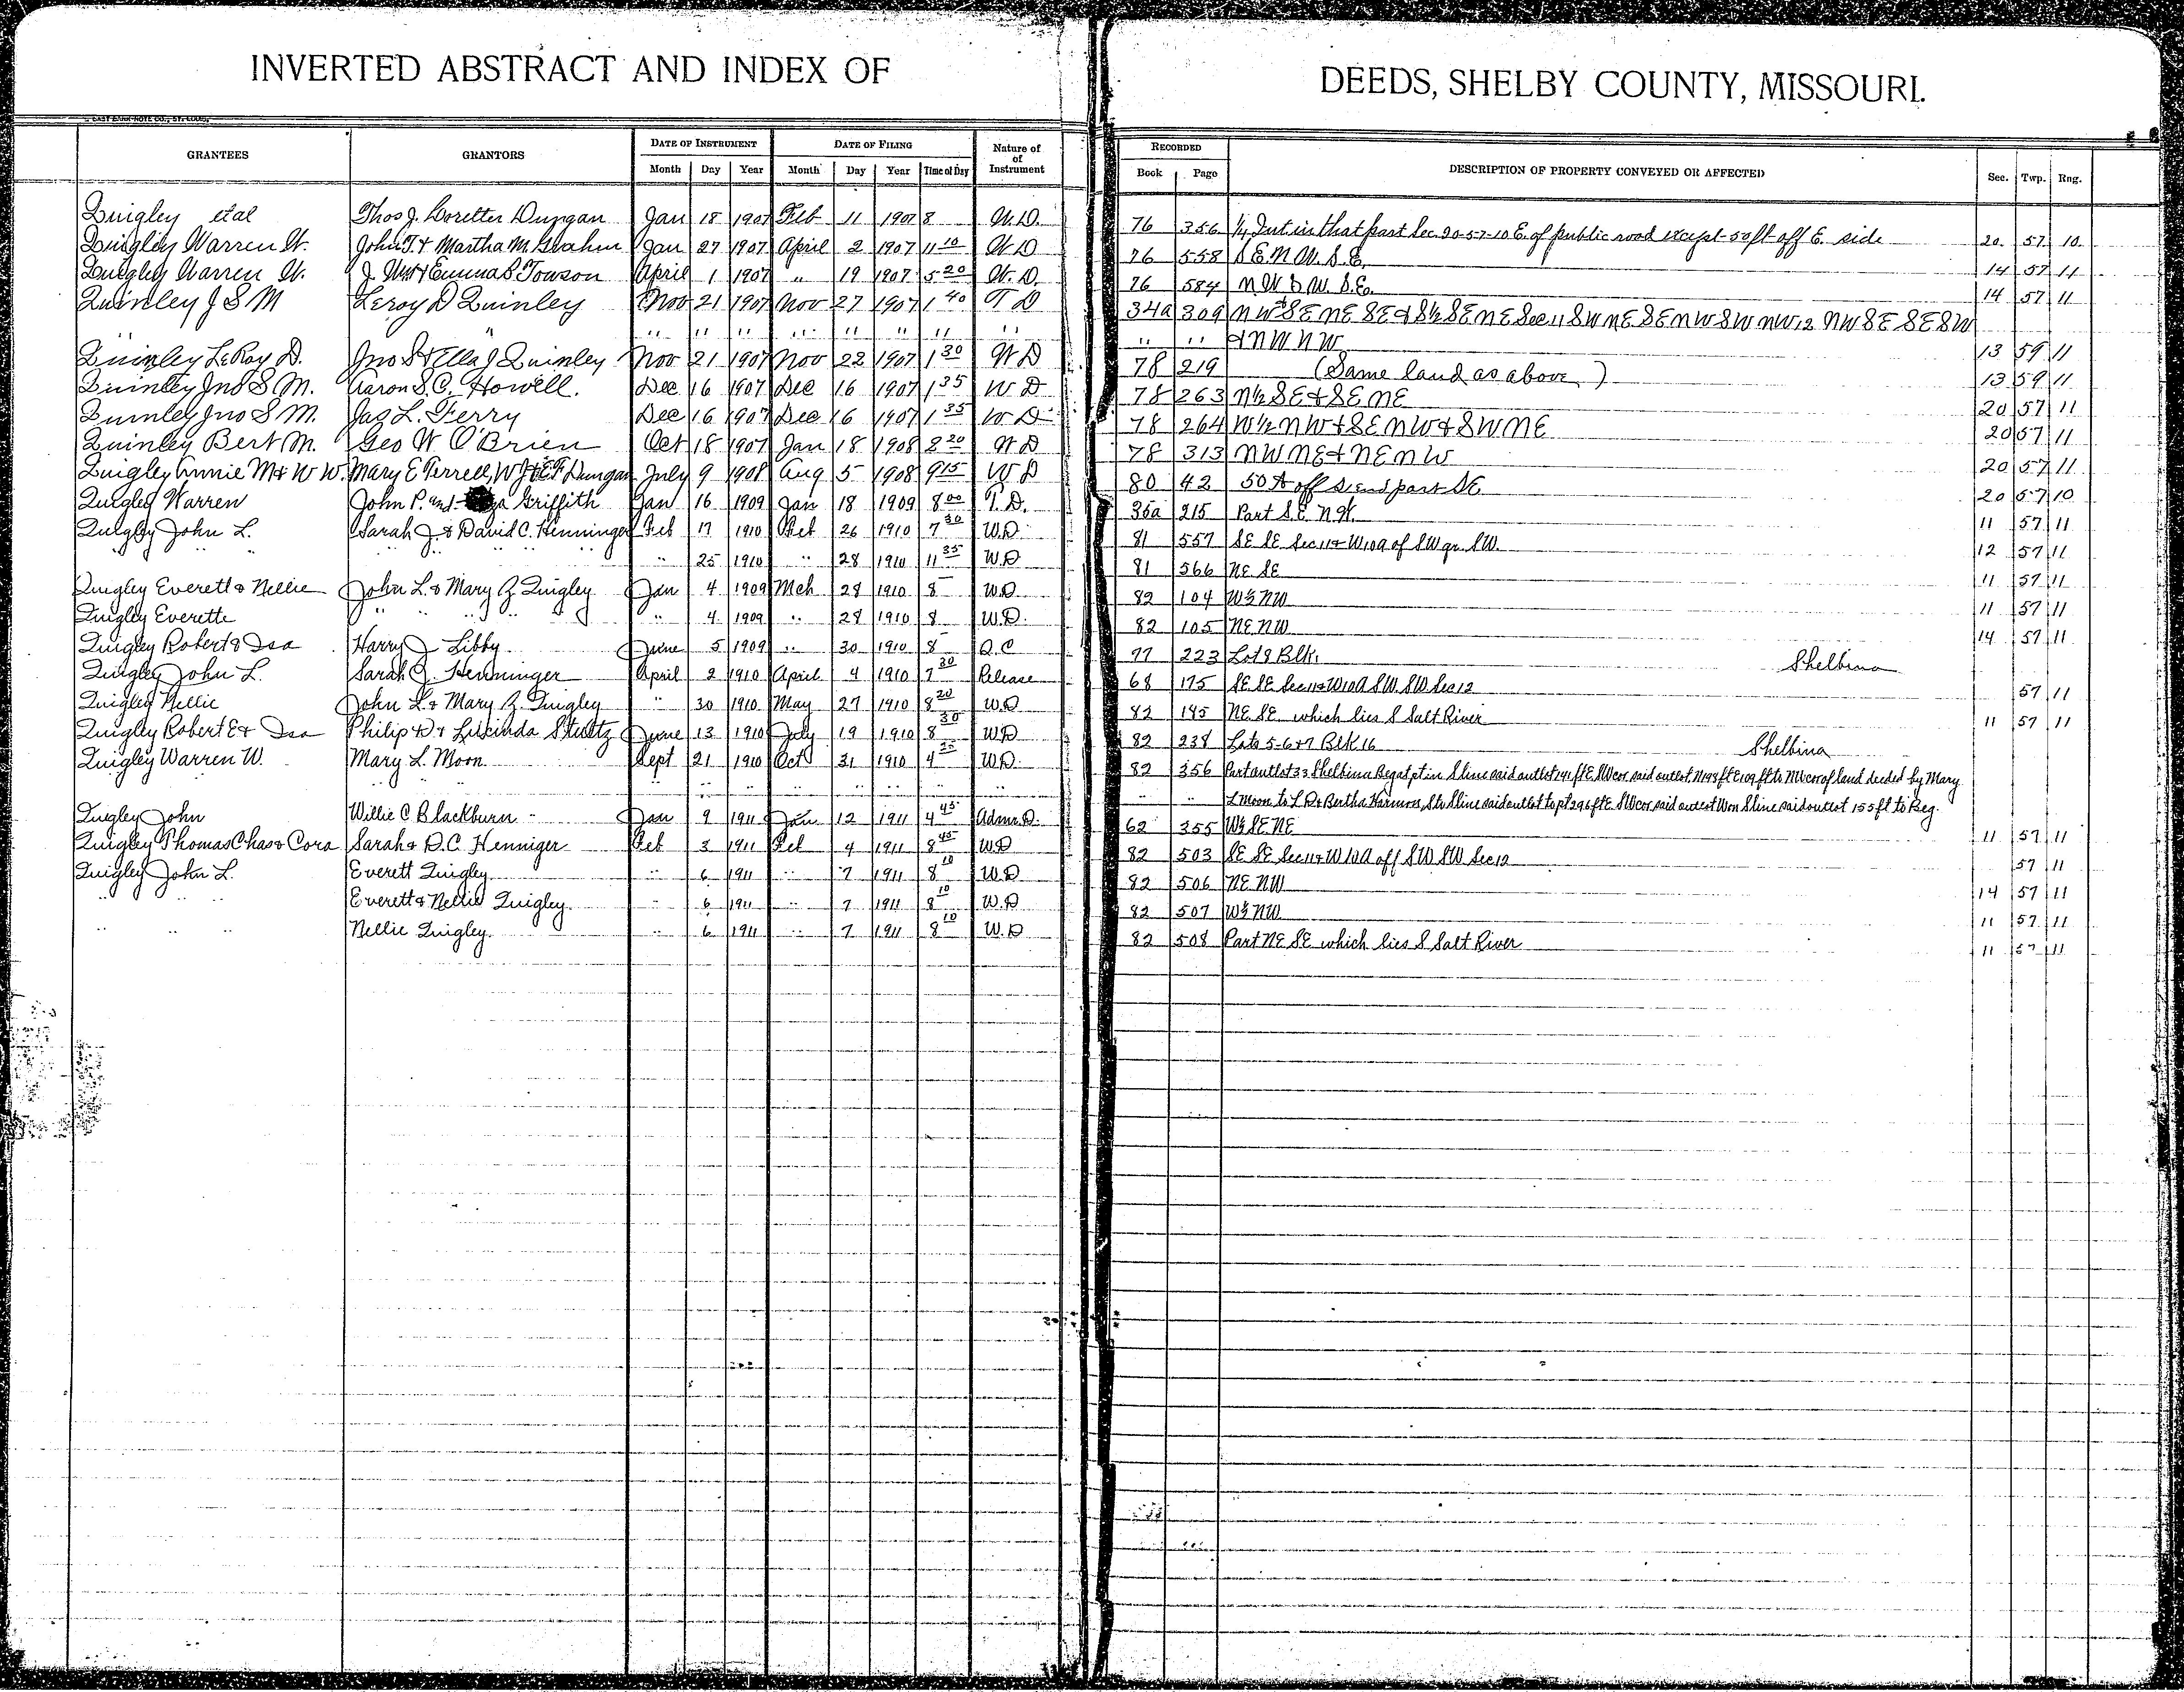 INVERTED ABSTRACT AND INDEX OF DEEDS, SHELBY COUNTY, MISSOURI.
GRANTEES GRANTORS DATE OF INSTRUMENT DATE OF FILING Nature of of Instrument RECORDED DESCRIPTION OF PROPERTY CONVEYED OR AFFECTED Sec. Twp. Rng.
Month Day Year Month Day Year Time of Day Book Page
Quigley etal Thos J. Loretter Dungan Jan 18 1907 Feb 11 1907 8 W.D. 76 356 1/4 Int in that part Sec. 20-57-10 E. of public road except 50 ft off E. side 20 57 10
Quigley Warren W. John T. & Martha M. Jan 27 1907 April 2 1907 11 10 W D 76 558 S.E. N.W. S.E. 14 57 11
Quigley Warren W. J. Wm & Emma S. Towson April 1 1907 " 19 1907 5 20 W.D. 76 584 N.W. & W. S.E. 14 57 11
Quinley J S M Leroy D Quinley Nov 21 1907 Nov 27 1907 1 40 T D 34a 309 NW SE NE SE & S½ SE NE Sec. 11 SW NE SE NW SW NW 12 NW SE SE SW
" " " " " " " " " " " & NW NW 13 59 11
Quinley LeRoy D. Jno S & Ella J Quinley Nov 21 1907 Nov 22 1907 1 30 W D 78 219 (Same land as above) 13 59 11
Quinley Jno S M. Aaron S. C. Howell. Dec 16 1907 Dec 16 1907 1 35 W D 78 263 N½ SE & SE NE 20 57 11
Quinley Jno S M. Jas L. Ferry Dec 16 1907 Dec 16 1907 1 35 W D 78 264 W½ NW & SE NW & SW NE 20 57 11
Quinley Bert M. Geo W O'Brien Oct 18 1907 Jan 18 1908 8 20 W D 78 313 NW NE & NE NW 20 57 11
Quigley Annie M & W W. Mary E Terrell, W J & E F Dungan July 9 1908 Aug 5 1908 9 15 W D 80 42 50 A off S end part SE 20 57 10
Quigley Warren John P. and Griffith Jan 16 1909 Jan 18 1909 8 00 T. D. 36a 215 Part S.E. N.W. 11 57 11
Quigley John L. Sarah J. & David C. Henninger Feb 17 1910 Feb 26 1910 7 30 W.D. 81 557 SE SE Sec 11 & W 10 A of SW qr. SW. 12 57 11
" " " " " " 25 1910 " 28 1910 11 35 W.D 81 566 NE SE 11 57 11
Quigley Everett & Nellie John L. & Mary Z Quigley Jan 4 1909 Mch 28 1910 8 W.D 82 104 W½ NW 11 57 11
Quigley Everette " " " " 4 1909 " 28 1910 8 W.D. 82 105 NE NW 14 57 11
Quigley Robert & Isa Harry J Libby June 5 1909 " 30 1910 8 Q.C 77 223 Lot 8 Blk 1 Shelbina
Quigley John L. Sarah J. Henninger April 2 1910 April 4 1910 7 30 Release 68 175 SE SE Sec 11 & W 10 A SW SW Sec 12 57 11
Quigley Nellie John L. & Mary Z. Quigley " 30 1910 May 27 1910 8 20 W.D 82 185 NE SE which lies S Salt River 11 57 11
Quigley Robert E & Isa Philip D & Lucinda Stultz June 13 1910 July 19 1910 8 30 W.D 82 238 Lots 5-6 & 7 Blk 16 Shelbina
Quigley Warren W. Mary L. Moon Sept 21 1910 Oct 31 1910 4 25 W.D. 82 356 Part outlot 33 Shelbina Beg at pt in S line said outlot 141 ft E SW cor said outlot N 198 ft E 109 ft to NW cor of land deeded by Mary
" " " " " " L Moon to L D & Bertha Harmon, S to S line said outlot to pt 296 ft E SW cor said outlot W on S line said outlot 155 ft to Beg.
Quigley John Willie C Blackburn Jan 9 1911 Jan 12 1911 4 45 Admr. D. 62 355 W½ SE NE 11 57 11
Quigley Thomas Chas & Cora Sarah & D.C. Henniger Feb 3 1911 Feb 4 1911 8 45 W.D 82 503 SE SE Sec 11 & W 10 A off SW SW Sec 12 57 11
Quigley John L. Everett Quigley " 6 1911 " 7 1911 8 10 W.D 82 506 NE NW 14 57 11
" " " Everett & Nellie Quigley " 6 1911 " 7 1911 8 10 W.D 82 507 W½ NW 11 57 11
" " " Nellie Quigley. " 6 1911 " 7 1911 8 10 W.D 82 508 Part NE SE which lies S Salt River 11 57 11